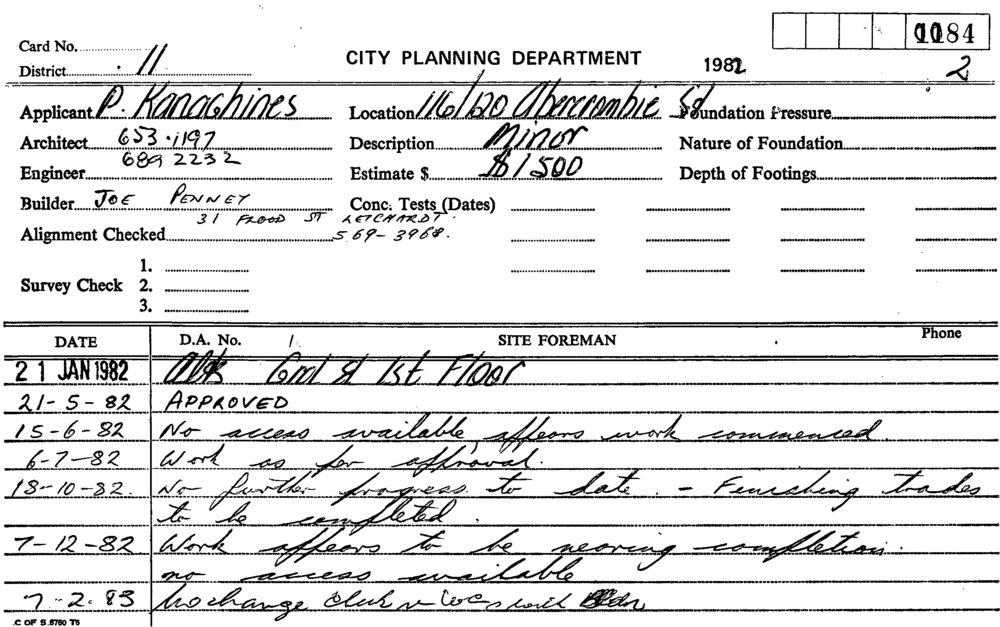 1184
Card No.
District 11
CITY PLANNING DEPARTMENT
1982
2
Applicant P. Kanaghines
Location 116/120 Abercrombie St
Foundation Pressure
Architect 653·1197
Description Minor
Nature of Foundation
689 2232
Engineer
Estimate $ $1500
Depth of Footings
Builder JOE PENNEY
Conc. Tests (Dates)
31 FLOOD ST LEICHARDT.
Alignment Checked 569-3968.
1.
Survey Check 2.
3.
DATE D.A. No. SITE FOREMAN Phone
21 JAN 1982 Grd & 1st Floor
21-5-82 APPROVED
15-6-82 No access available, appears work commenced.
6-7-82 Work as per approval.
18-10-82. No further progress to date. - Finishing trades
to be completed.
7-12-82 Work appears to be nearing completion.
no access available
7-2.83 No change
C OF S.5760 T5